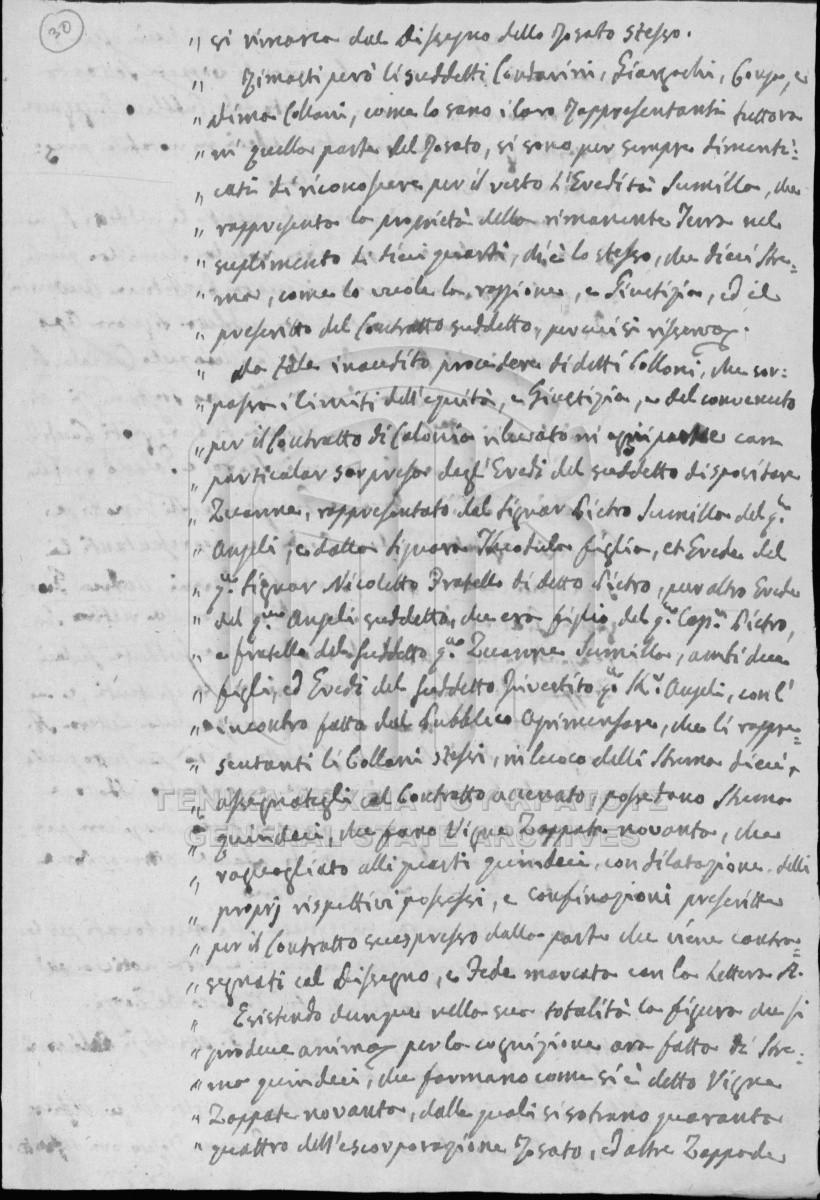 30
" si rimarca dal Dissegno dello Posato stesso.
" Rimasti però li suddetti Condarini, Giargochi, Congo, e
" dima Colloni, come lo sono i loro Rappresentanti tuttora
" in quella parte del Posato, si sono per sempre dimenti-
" cati di riconoscere per il resto l'Eredità Sumilla, che
" rappresenta la proprietà della rimanente Terra nel
" suplimento di dieci quarti, di è lo stesso, che dieci Stre-
" ma, come lo vuole la raggione, e Giustizia, ed il
" prescritto del Contratto suddetto, per cui si risserva.
" Da tale inaudito procedere di detti Colloni, che sor-
" passa i limiti dell'equità, e Giustizia, e del convenuto
" per il Contratto di Colonia rilevato in ogni parte con
" particolar sorpresa degl'Eredi del suddetto dispositore
" Zuanne, rappresentato dal Signor Pietro Sumilla del q.m
" Angeli, e dalla Signora Theodula figlia, et Erede del
" q.m Signor Nicoletto Fratello di detto Pietro, pur altro Erede
" del q.m Angeli suddetto, che era figlio del q.m Cap.n Pietro,
" e fratello del suddetto q.m Zuanne Sumilla, ambi due
" figli, ed Eredi del suddetto Investito q.m Angeli, con l'
" incontro fatto dal Pubblico Agrimensore, che li rappre-
" sentanti li Colloni stessi, in luoco delli Strema dieci,
" assegnategli col Contratto accennato, possedano Strema
" quindeci, che fano Vigne Zappate novanta, che
" raguagliato alli quarti quindeci, con dilatazione delli
" proprj rispettivi possessi, e confinazioni prescritte
" per il Contratto suespresso dalla parte che viene contra-
" segnati col Dissegno, e Fede marcata con la Lettera A.
" Esistendo dunque nella sua totalità la figura che si
" produce anima per la cognizione ora fatta di Stre-
" ma quindeci, che formano come si è detto Vigne
" Zappate novanta, dalle quali si sotrano quaranta
" quattro dell'escorporazione Posato, ed altre Zappade
ΓΕΝΙΚΑ ΑΡΧΕΙΑ ΤΟΥ ΚΡΑΤΟΥΣ
GENERAL STATE ARCHIVES